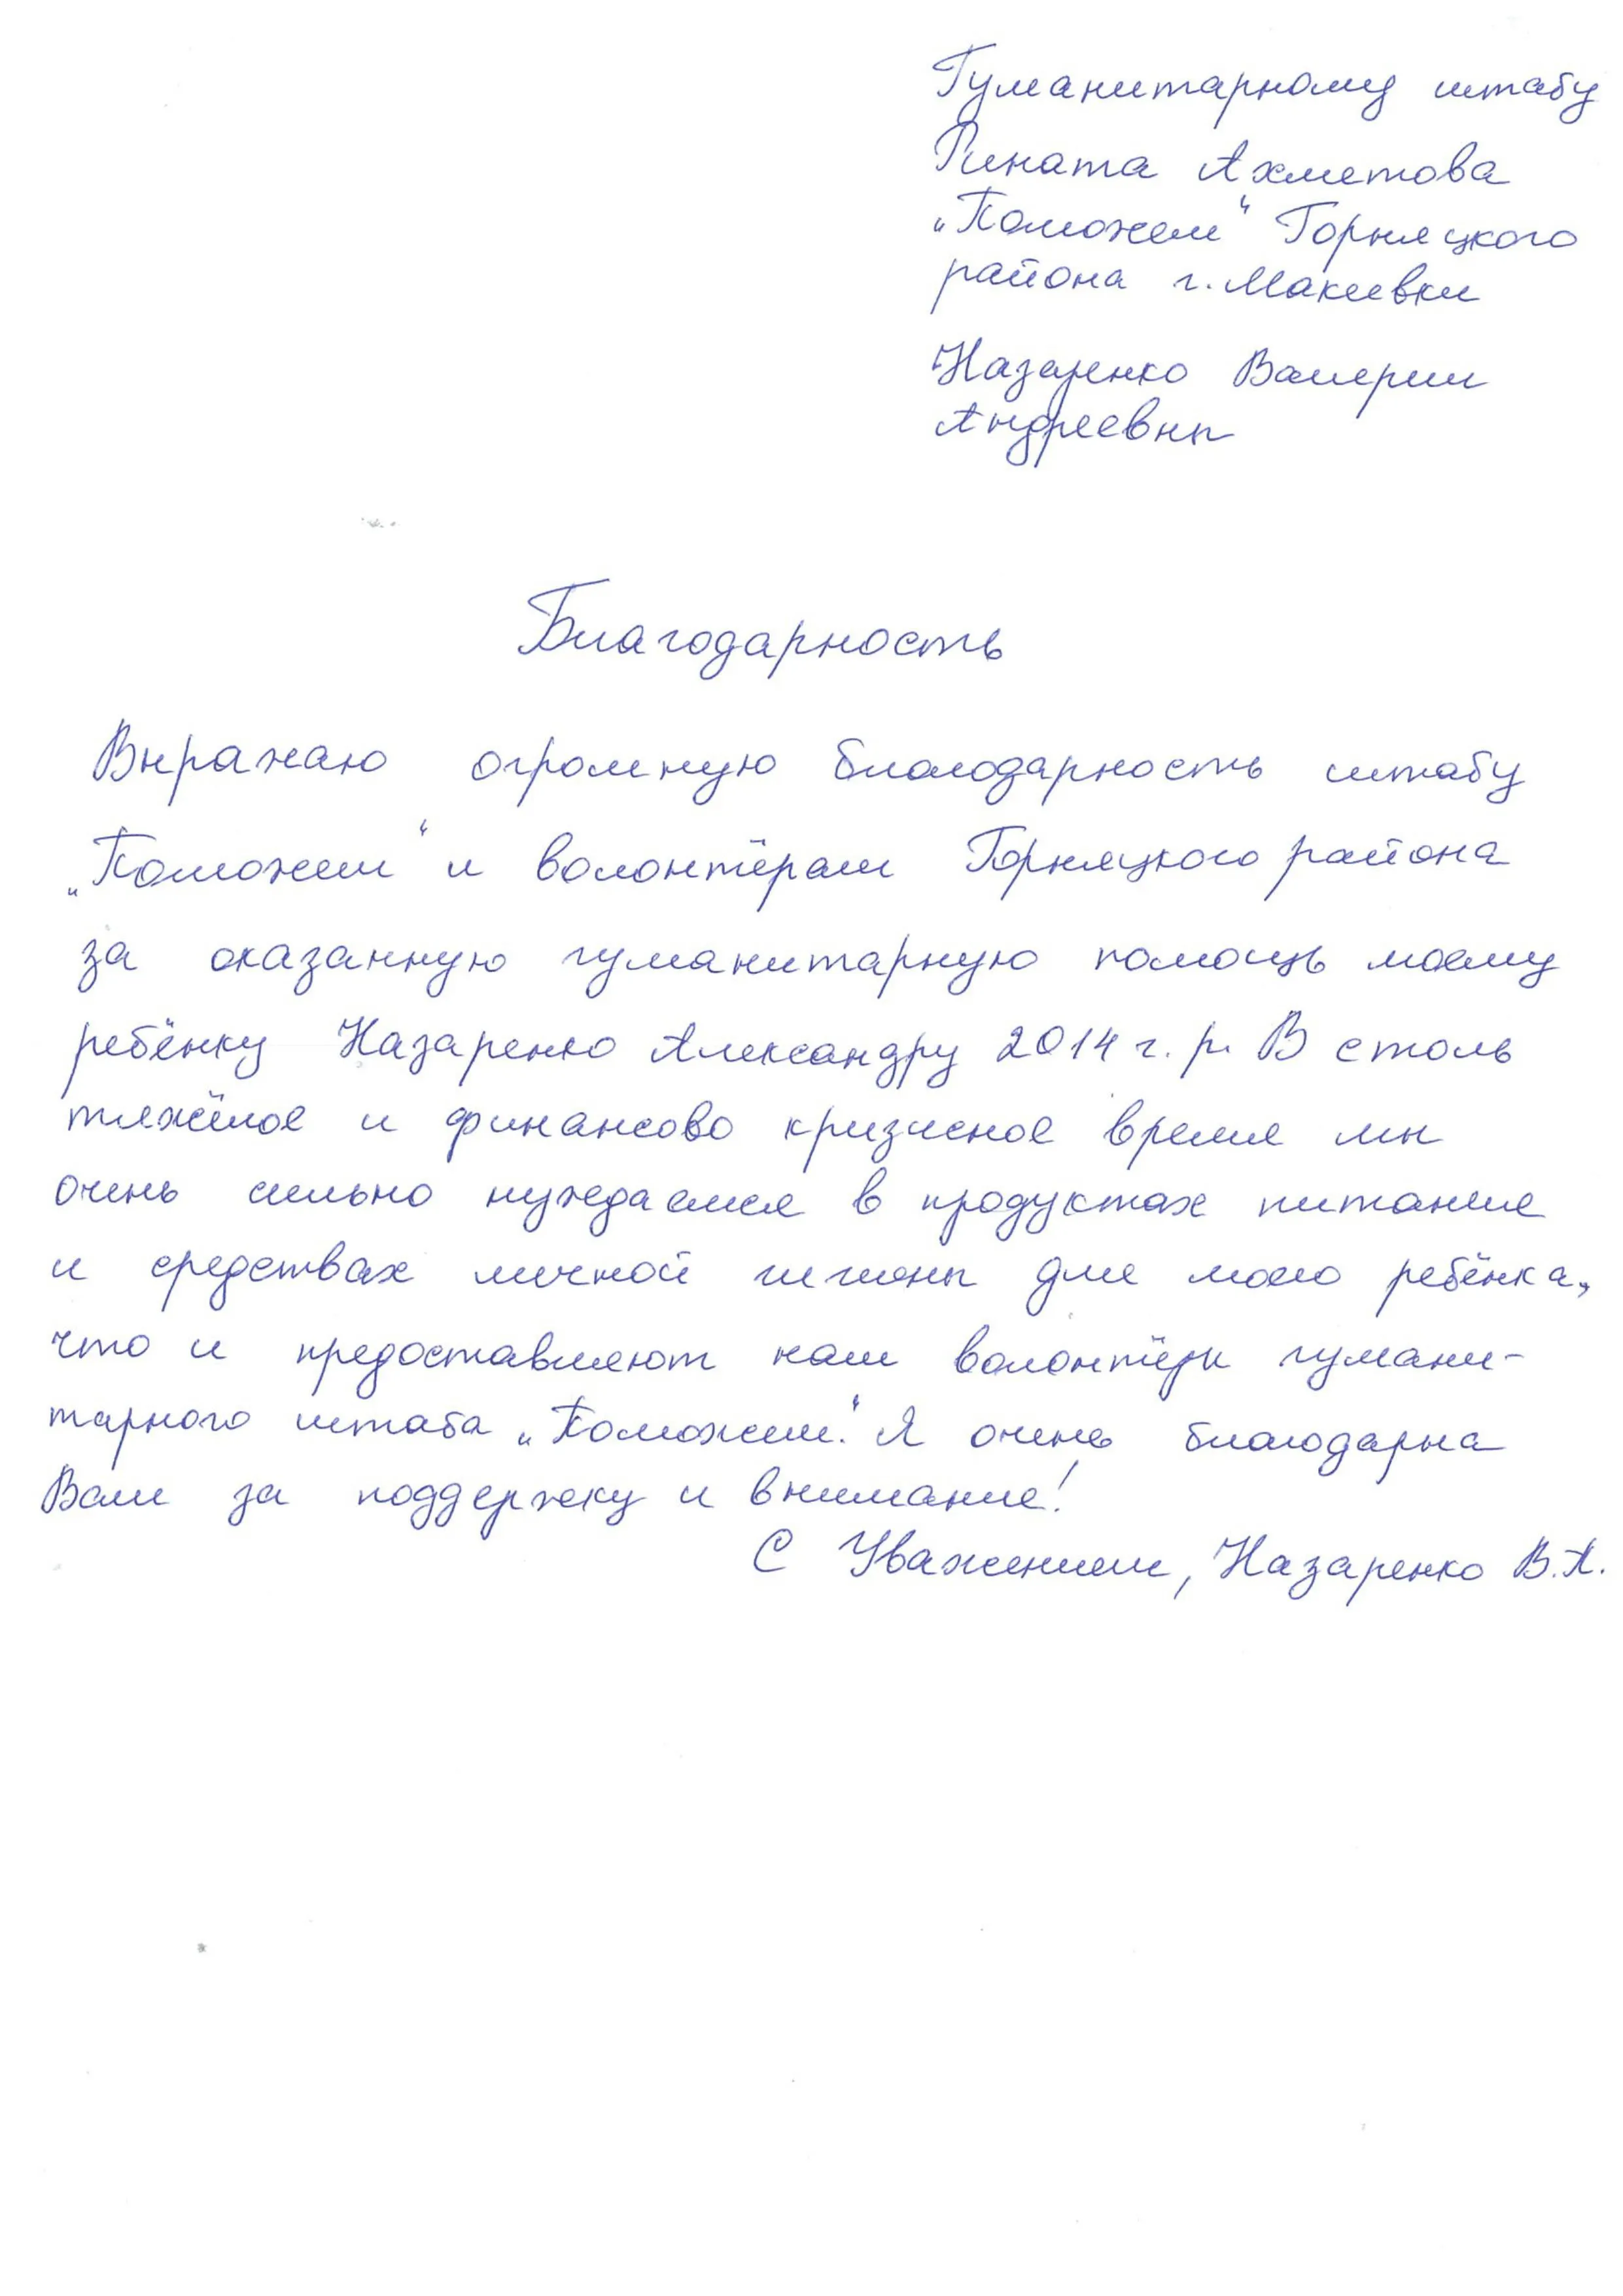 Гуманитарному штабу
Рината Ахметова
„Поможем“ Горняцкого
района г. Макеевки
Назаренко Валерии
Андреевны
Благодарность
Выражаю огромную благодарность штабу
„Поможем“ и волонтёрам Горняцкого района
за оказанную гуманитарную помощь моему
ребёнку Назаренко Александру 2014 г. р. В столь
тяжёлое и финансово кризисное время мы
очень сильно нуждаемся в продуктах питания
и средствах личной гигиены для моего ребёнка,
что и предоставляют нам волонтёры гумани-
тарного штаба „Поможем“. Я очень благодарна
Вам за поддержку и внимание!
С Уважением, Назаренко В.А.